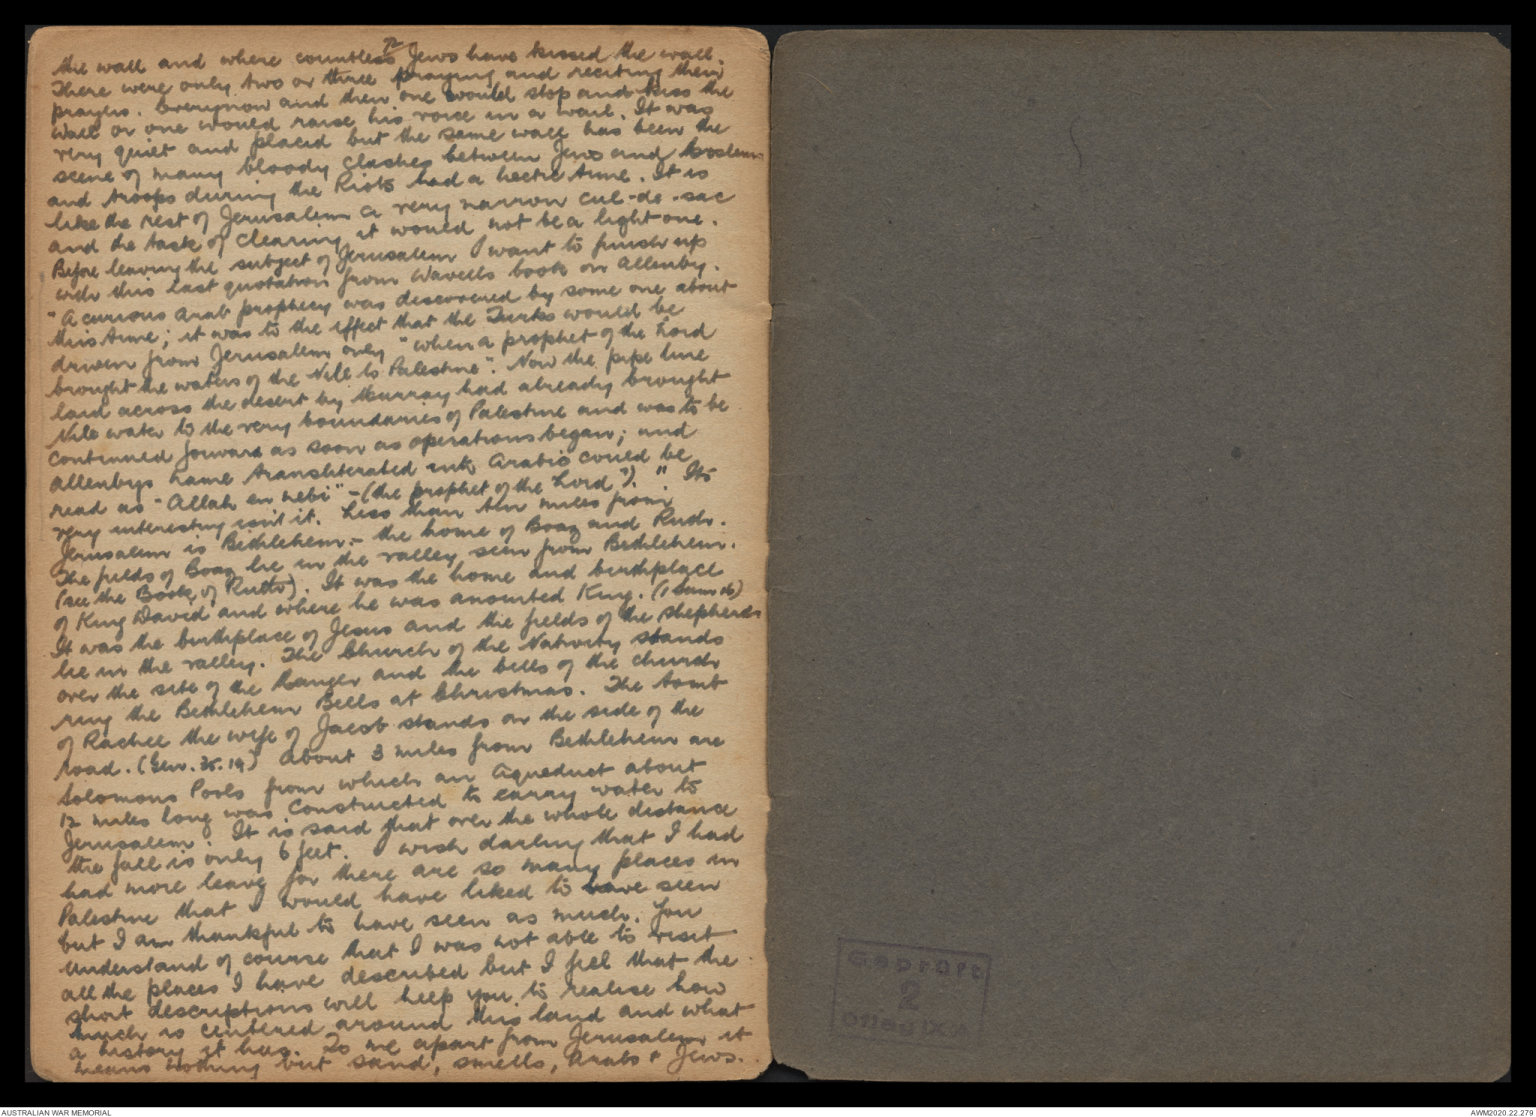 72
the wall and where countless Jews have kissed the wall.
There were only two or three praying and reciting their
prayers. Everynow and then one would stop and kiss the
wall or one would raise his voice in a wail. It was
very quiet and placid but the same wall has been the
scene of many bloody clashes between Jews and Moslems
and troops during the Riots had a hectic time. It is
like the rest of Jerusalem a very narrow cul-de-sac
and the task of clearing it would not be a light one.
Before leaving the subject of Jerusalem I want to finish up
with this last quotation from Wavells book on Allenby.
"A curious Arab prophecy was discovered by some one about
this time; it was to the effect that the Turks would be
driven from Jerusalem only "when a prophet of the Lord
brought the waters of the Nile to Palestine". Now the pipe line
laid across the desert by Murray had already brought
Nile water to the very boundaries of Palestine and was to be
continued forward as soon as operations began; and
Allenbys name transliterated into Arabic could be
read as "Allah en nebi" - (the prophet of the Lord")." Its
very interesting isn't it. Less than ten miles from
Jerusalem is Bethlehem - the home of Boaz and Ruth.
The fields of Boaz lie in the valley seen from Bethlehem.
(see the Book of Ruth). It was the home and birthplace
of King David and where he was anointed King. (1 Sam 16)
It was the birthplace of Jesus and the fields of the shepherds
lie in the valley. The Church of the Nativity stands
over the site of the Manger and the bells of the church
ring the Bethlehem Bells at Christmas. The tomb
of Rachel the wife of Jacob stands on the side of the
road. (Gen. 35. 19) About 3 miles from Bethlehem are
Solomons Pools from which an Aqueduct about
12 miles long was constructed to carry water to
Jerusalem. It is said that over the whole distance
the fall is only 6 feet. I wish darling that I had
had more leave for there are so many places in
Palestine that I would have liked to have seen
but I am thankful to have seen as much. You
understand of course that I was not able to visit
all the places I have described but I feel that the
short descriptions will help you to realise how
much is centered around this land and what
a history it has. To me apart from Jerusalem it
means nothing but sand, smells, Arabs & Jews.
Geprüft
2
Oflag IX
AUSTRALIAN WAR MEMORIAL
AWM2020.22.279